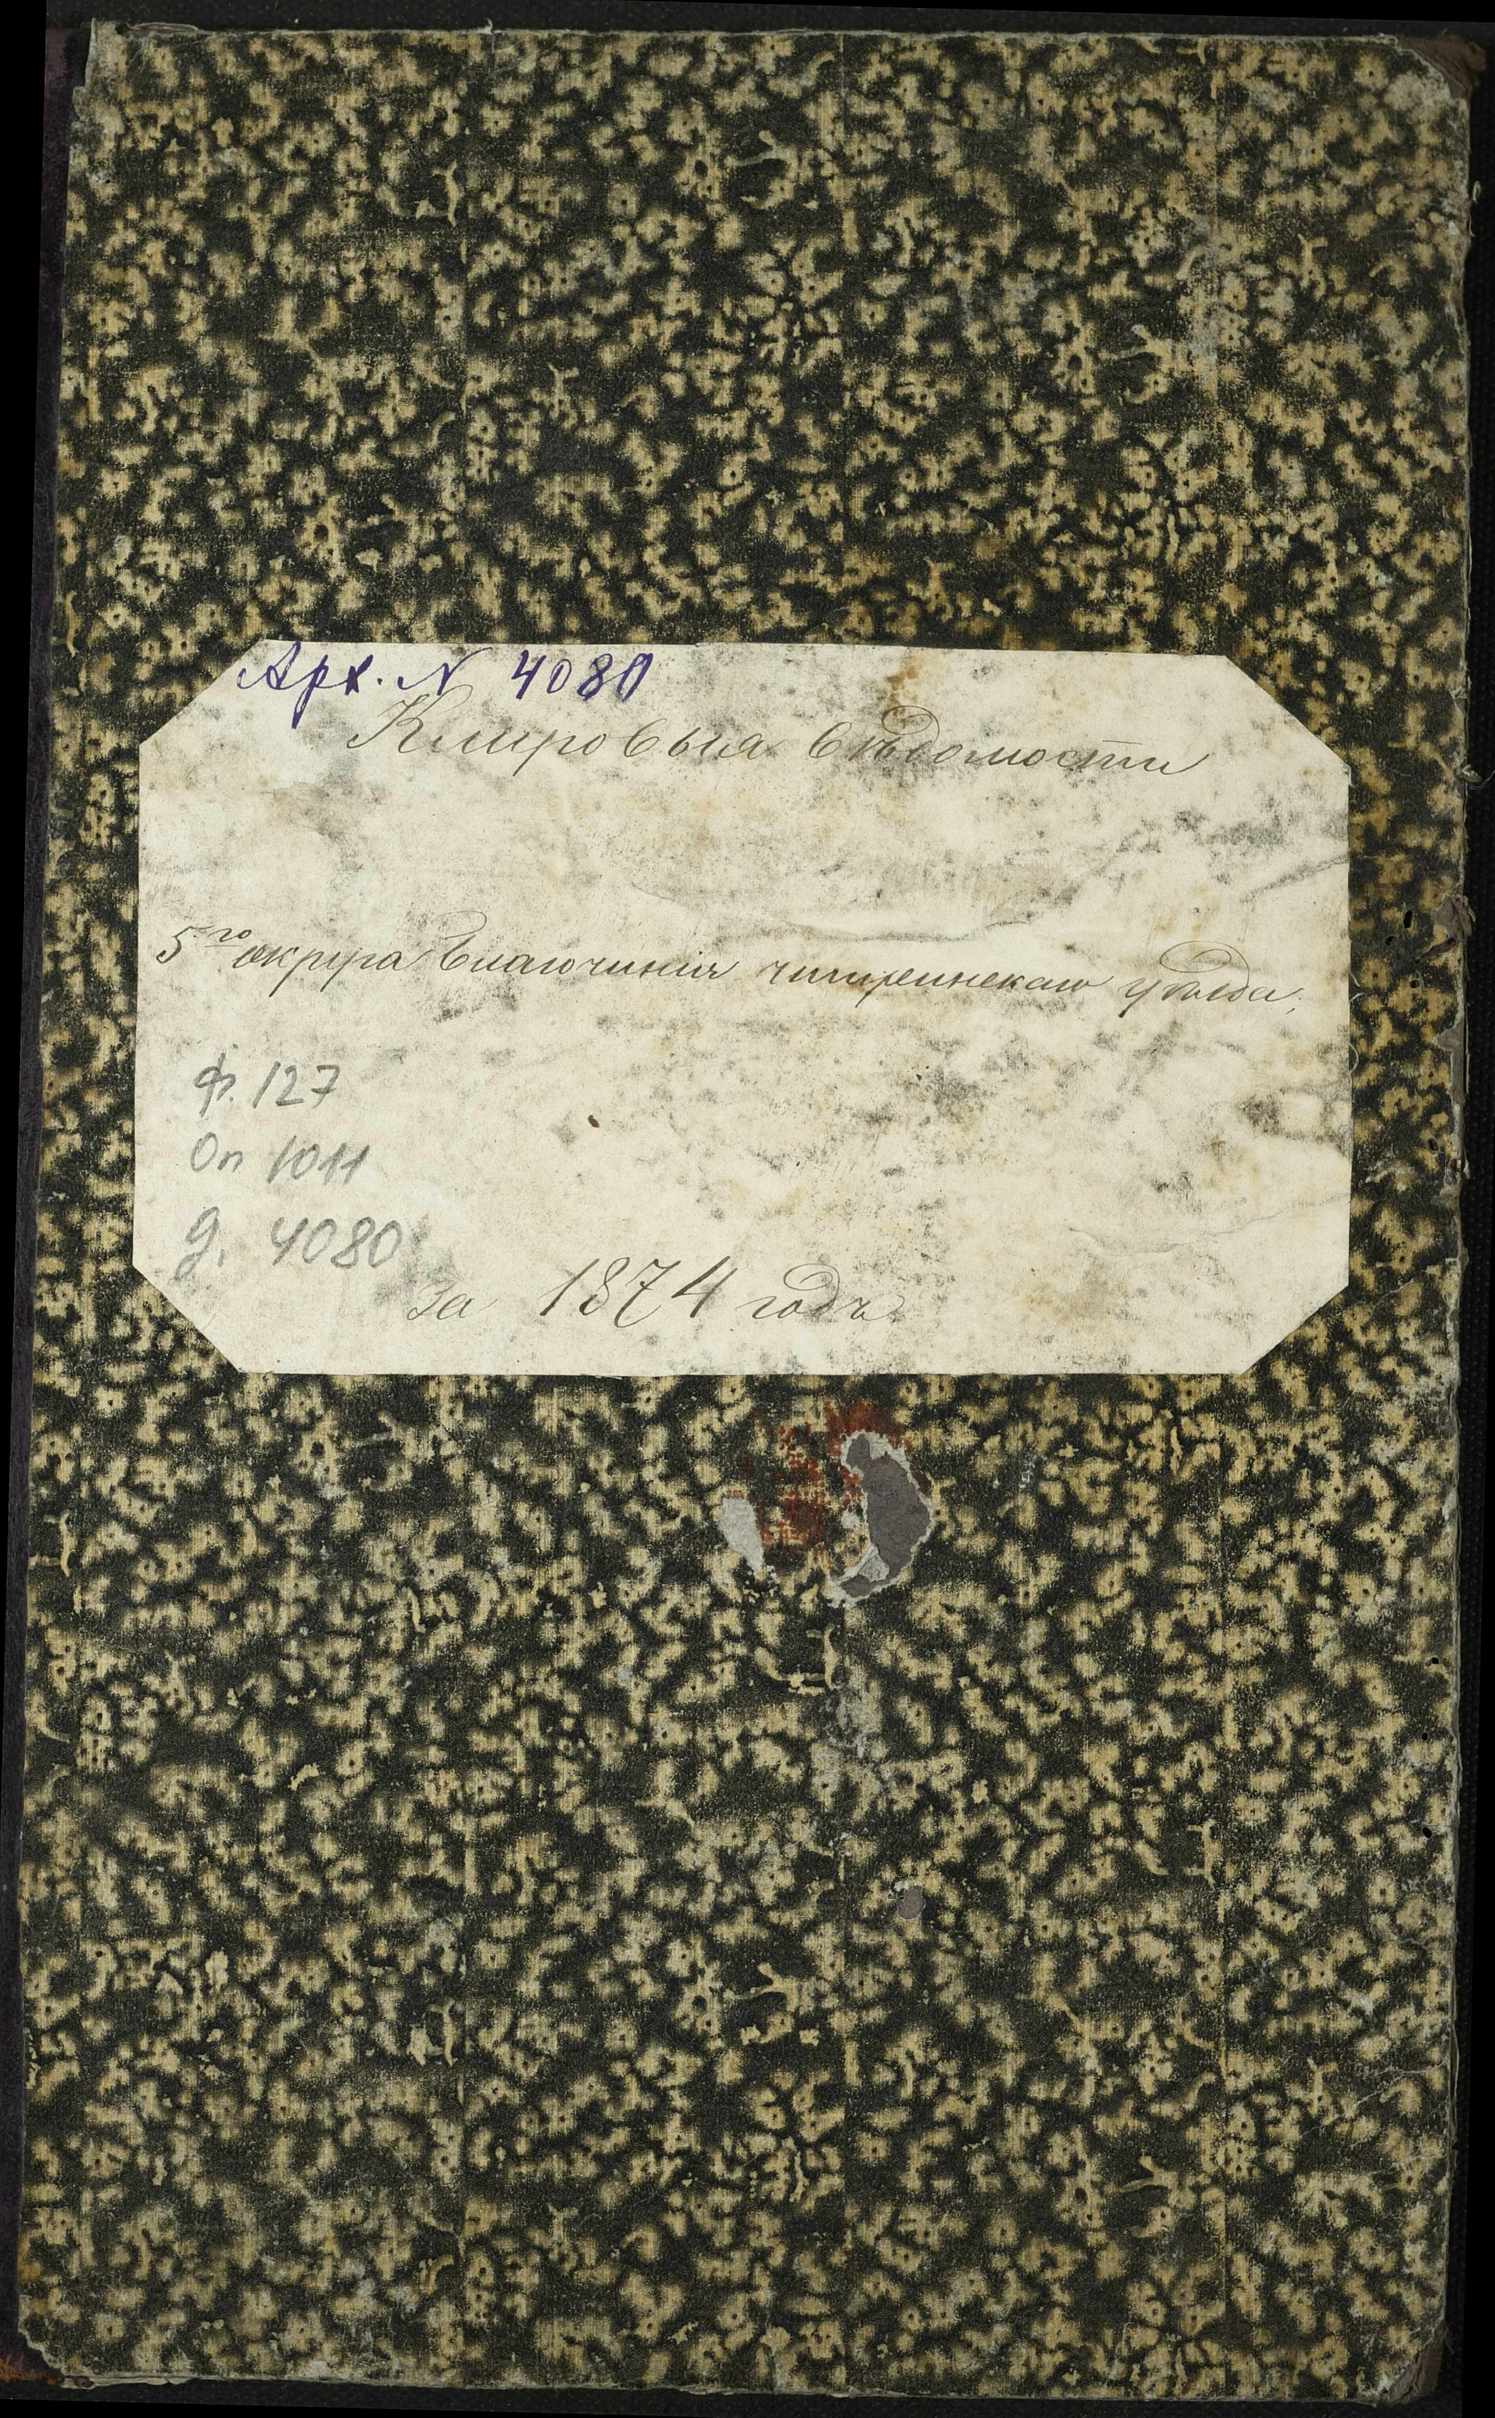 Арх. N 4080
Клировыя вѣдомости
5го округа благочинія чигиринскаго уѣзда.
ф. 127
Оп 1011
д. 4080
за 1874 годъ